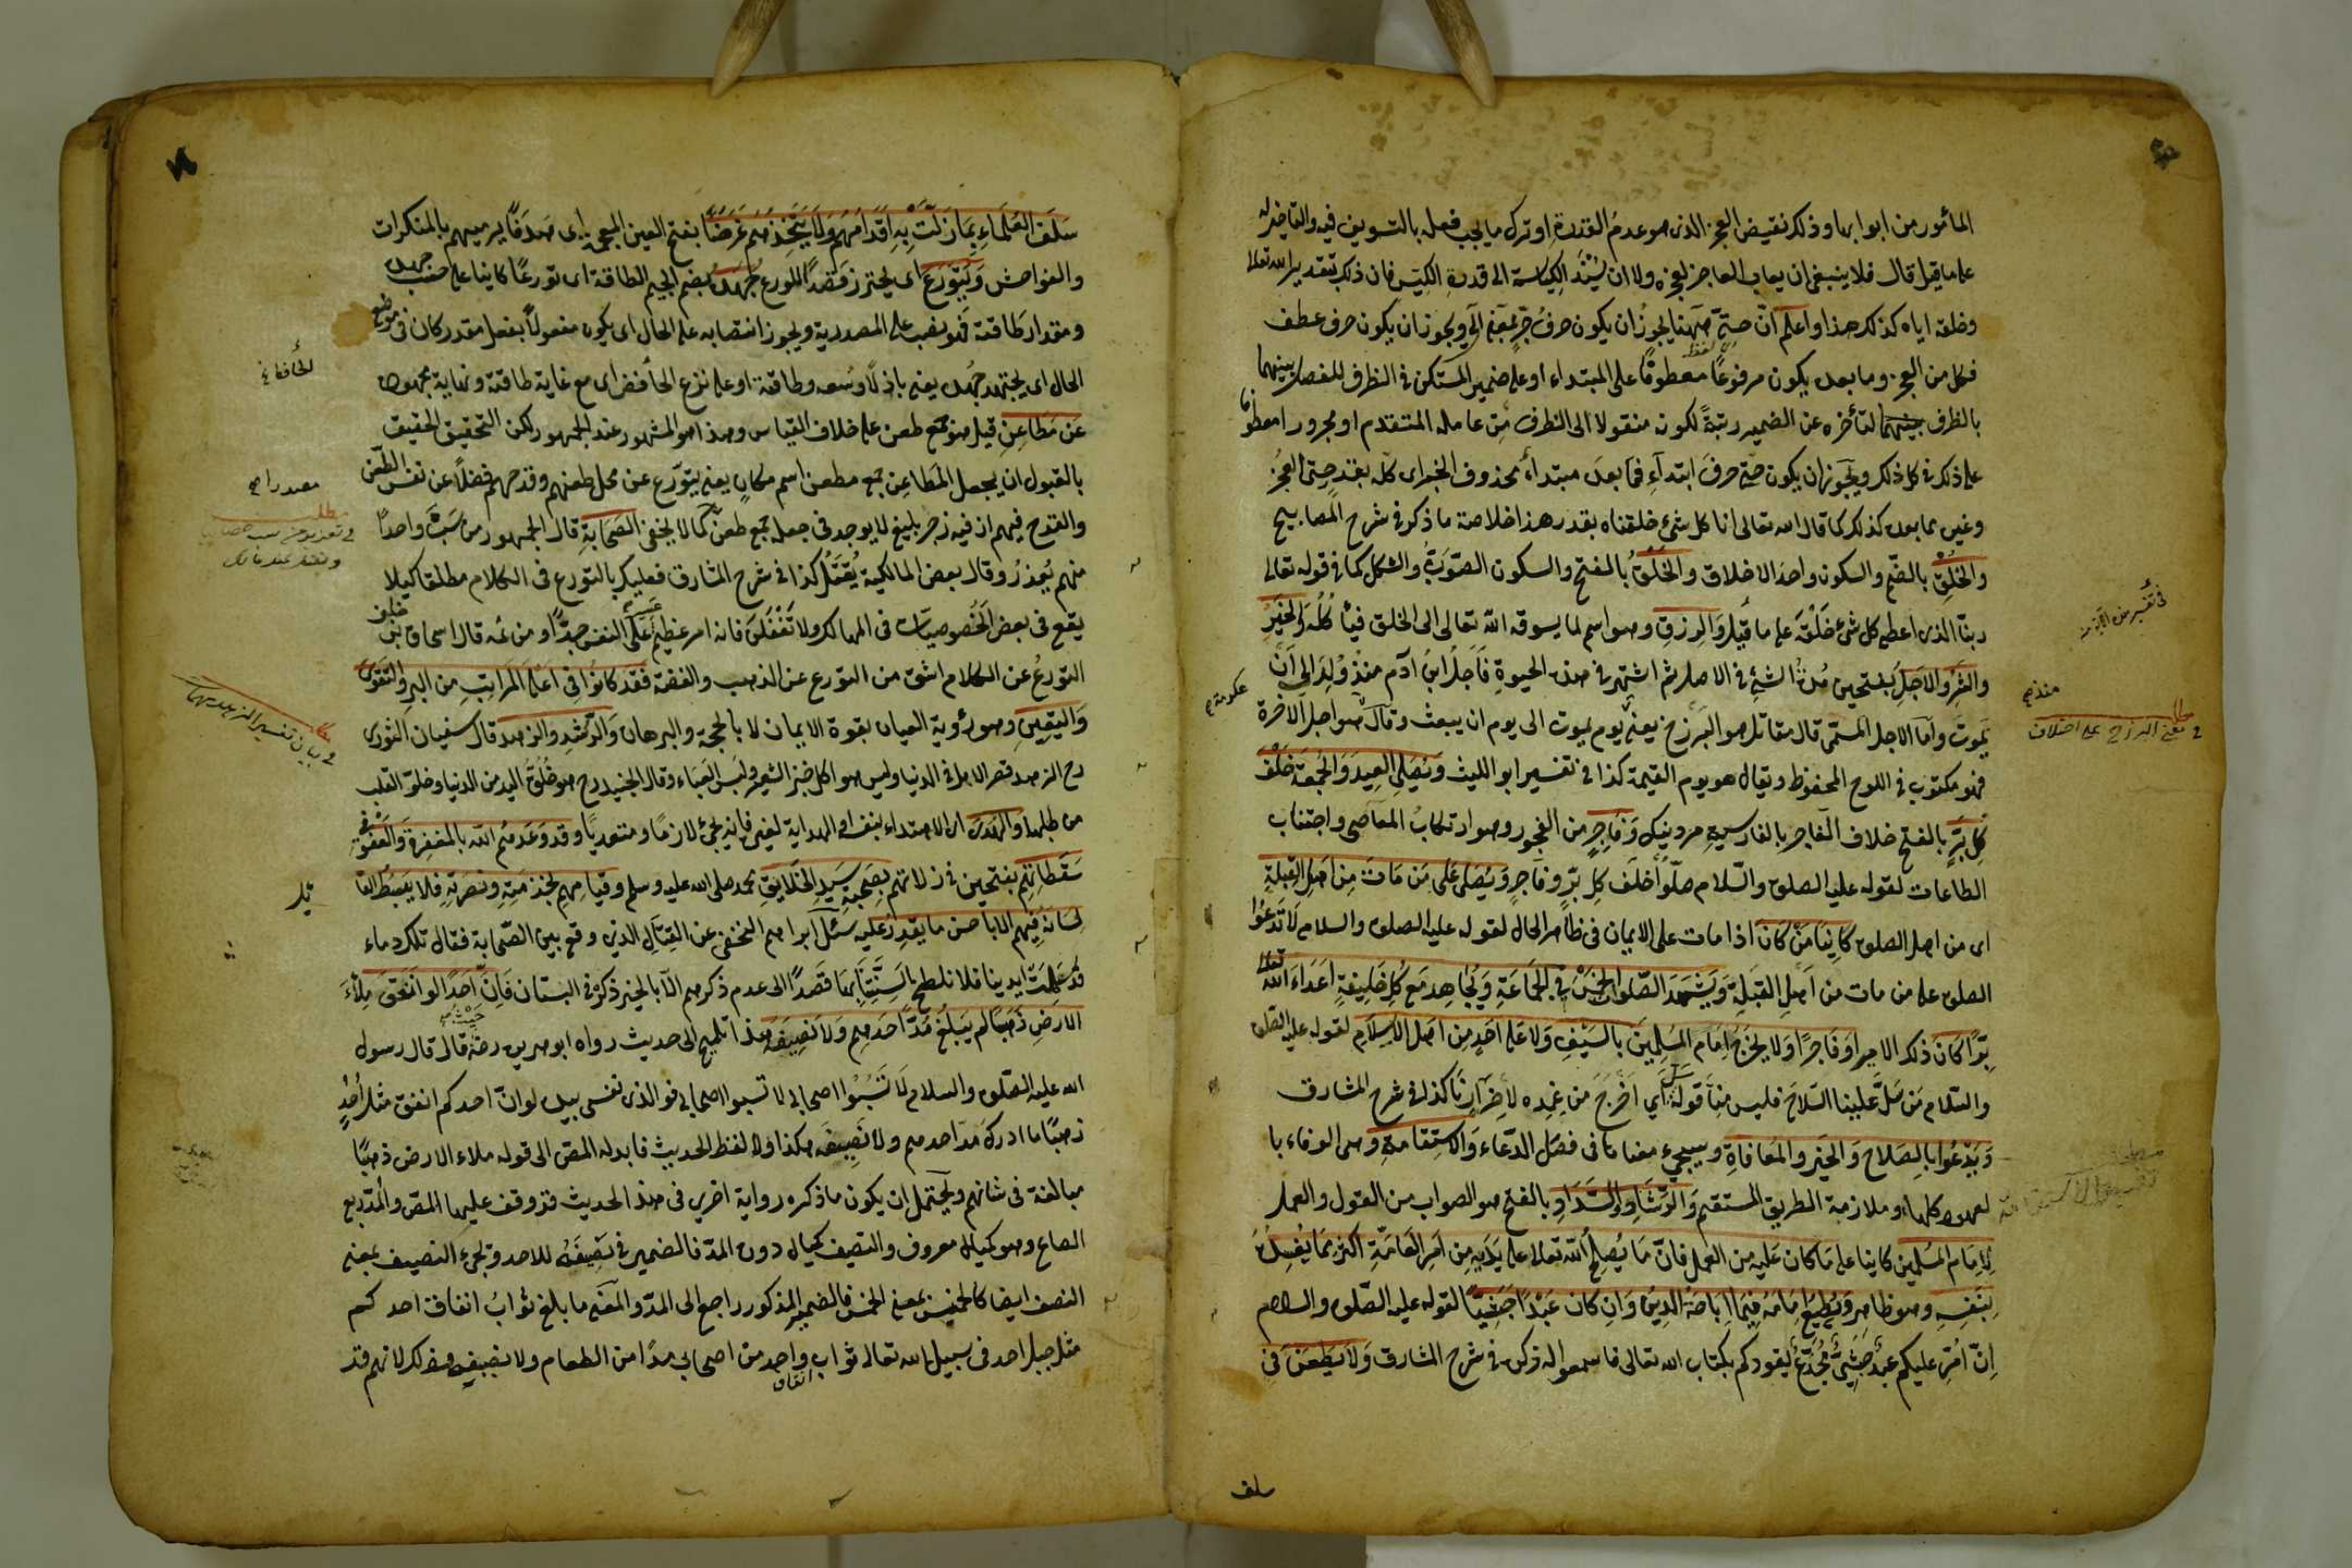 المأمور من ابوابها وذلك نقيض العجز الذى هو عدم القدرة او ترك ما يجب فعله بالتسويف فيه والتأخير له
على ما قيل قال فلا ينبغى ان يعاب العاجز لعجزه ولا ان يُسْنَد الكياسة الى قدرة الكيّس فان ذلك بتقدير الله تعالى
وخلقه اياه كذلك هذا واعلم انّ حتىّ ههنا يجوز ان يكون حرف جرّ بمعنى الى ويجوز ان يكون حرف عطف
فكل من العجز وما بعده يكون مرفوعًا معطوفًا على المبتداء او على ضمير المستكن فى الظرف للفصل بينهما
بالظرف لتأخره عن الضمير رتبةً لكونه منقولا الى الظرف من عامله المتقدم او مجرورا معطوفا
على ذلك فى كل ذلك ويجوز ان يكون حتى حرف ابتداءٍ فما بعده مبتداء محذوف الخبر اى كله بقدر حتى العجز
وغيره مما بعده كذلك كما قال الله تعالى انا كل شئ خلقناه بقدر هذا خلاصة ما ذكر فى شرح المصابيح
والخُلْق بالضم والسكون واحد الاخلاق والخَلْقُ بالفتح والسكون الصورة والشكل كما فى قوله تعالى
ربنا الذى اعطى كل شئ خلْقَه على ما قيل والرزق وهو اسم لما يسوقه الله تعالى الى الخلق فيأكله والخير
والشر والاجل بفتحين مدة الشئ فى الاصل ثم اشتهر فى هذه الحيوة فاجل ابن آدم منذ ولد الى ان
يموت وامّا الاجل المسمّى قال مقاتل هو البرزخ يعنى يوم يموت الى يوم ان يبعث وقال هو اجل الآخرة
فهو مكتوب فى اللوح المحفوظ ويقال هو يوم القيمة كذا فى تفسير ابو الليث ويصلى العيد والجمعة خلف
كل برّ بالفتح خلاف الفاجر بالفارسية مرد نيك وفاجرٍ من الفجور وهو ارتكاب المعاصى واجتناب
الطاعات لقوله عليه الصلوة والسلام صلّوا خلف كل برّ وفاجر ويصلى على من مات من اهل القبلة
اى من اهل الصلوة كائنا من كان اذا مات على الايمان فى ظاهر الحال لقوله عليه الصلوة والسلام لا تدعوا
الصلوة على من مات من اهل القبلة ويشهد الصلوات الخمس فى الجماعة ويجاهد مع كل خليفة اعداء الله تعالى
برًّا كان ذلك الامير او فاجرًا ولا يخرج امام المسلمين بالسيف ولا على احدٍ من اهل الاسلام لقوله عليه الصلوة
والسلام من سلّ علينا السلاح فليس منا قوله سلّ اي اخرج من غمده لاضرارنا كذا فى شرح المشارق
ويدعوا بالصلاح والخير والمعافاة وسيجيء معناها فى فصل الدعاء والاستقامة وهى الوفاء با
لعهود كلها وملازمة الطريق المستقيم والرشاد والسداد بالفتح هو الصواب من القول والعمل
لامام المسلمين كائنا على ما كان عليه من العمل فانّ ما يصلح الله تعالى على يديه من امر العامة اكثر مما يفسد
بنفسه وهو ظاهر ويطيع امامه فيما اباحه الدين وان كان عبدًا حبشيًّا لقوله عليه الصلوة والسلام
انّ امّر عليكم عبد حبشىّ مجدّع يقودكم بكتاب الله تعالى فاسمعوا له ذكره فى شرح المشارق ولا يطعن فى
سلف
منذ
عكرمة
مطلب
فى معنى البرزخ على اختلاف
مطلب
تفسير الاستقامة
سلف العلماء بما زلّت به اقدامهم ولا يتخذهم غرضًا بفتح الغين المعجمة اى هدفًا يرميهم بالمنكرات
والفواحش ويتورّع اى يحترز قصدًا للورع جُهده بضم الجيم الطاقة اى تورعًا كائنا على حسب جهده
ومقدار طاقته فهو نصب على المصدرية ويجوز انتصابه على الحال اى يكون مفعولاً بفعل مقدر كان فى موضع
الحال اى يجتهد جُهده يعنى باذلاً وسعه وطاقته او على نزع الخافض اى مع غاية طاقته ونهاية مجهوده
عن مطاعن قيل هو جمع طعن على خلاف القياس وهذا هو المشهور عند الجمهور لكن التحقيق الحقيق
بالقبول ان يجعل المطاعن جمع مطعن اسم مكانٍ يعنى يتورّع عن محل طعنهم وقدحهم فضلاً عن نفس الطعن
والقدح فيهم اذ فيه زجر بليغ لا يوجد فى جعله جمع طعن كما لا يخفى الصحابة قال الجمهور من سبّ واحدًا
منهم يُعزر وقال بعض المالكية يُقتل كذا فى شرح المشارق فعليك بالتورع فى الكلام مطلقا كيلا
يقع فى بعض الخصوصيات فى المهالك ولا تغفلن فانه امر عظيم على النفس جدًّا ومن ثمه قال اسحاق بن خلف
التورع عن الكلام اشق من التورع عن الذهب والفضة فقد كانوا فى اعلى المراتب من البر والتقوى
واليقين وهو رؤية العيان بقوة الايمان لا بالحجة والبرهان والرشد والزهد قال سفيان الثورى
رح الزهد قصر الامل فى الدنيا وليس هو اكل خبز الشعير ولبس العباء وقال الجنيد رح هو خلوّ اليد من الدنيا وخلوّ القلب
من طلبها والهدى اى الاهتداء بنفسه او الهداية لغيره فانه يجئ لازمًا ومتعديًا وقد وعدهم الله بالمغفرة والعفو فى
سقطاتهم بفتحين فى زلاتهم بصحبة سيد الخلايق محمد صلى الله عليه وسلم وقيامهم بخدمته ونصرته فلا يبسط القا
لسانه فيهم الا باحسن ما يقدر عليه سئل ابراهيم النخعى عن القتال الذى وقع بين الصحابة فقال تلك دماء
قد علمت ايدينا فلا نلطخ السنتنا بها قصدًا الى عدم ذكرهم الّا بالخير ذكره فى البستان فانّ احدًا لو انفق ملأ
الارض ذهبًا لم يبلغ مدّ احدهم ولا نصيفه هذا تلميح الى حديث رواه ابو هريره رضه قال قال رسول
الله عليه الصلوة والسلام لا تسبّوا اصحابى لا تسبوا اصحابى فو الذى نفسى بيده لو انّ احدكم انفق مثل اُحُدٍ
ذهبًا ما ادرك مدّ احدهم ولا نصيفه هكذا ولا لفظ الحديث فابدله المص الى قوله ملاء الارض ذهبًا
مبالغة فى شانهم ويحتمل ان يكون ما ذكره رواية اخرى فى هذا الحديث قد وقف عليها المص والمدّ ربع
الصاع وهو كيال معروف والنصيف كيال دون المدّ فالضمير فى نصيفه للاحد وتجىء النصيف بمعنى
النصف ايضا كالخميس بمعنى الخمس فالضمير المذكور راجع الى المدّ والمعنى ما بلغ ثواب انفاق احدكم
مثل جبل احد فى سبيل الله تعالى ثواب انفاق واحد من اصحابى مدًا من الطعام ولا نصيفه وذلك لانهم قد
مطلب